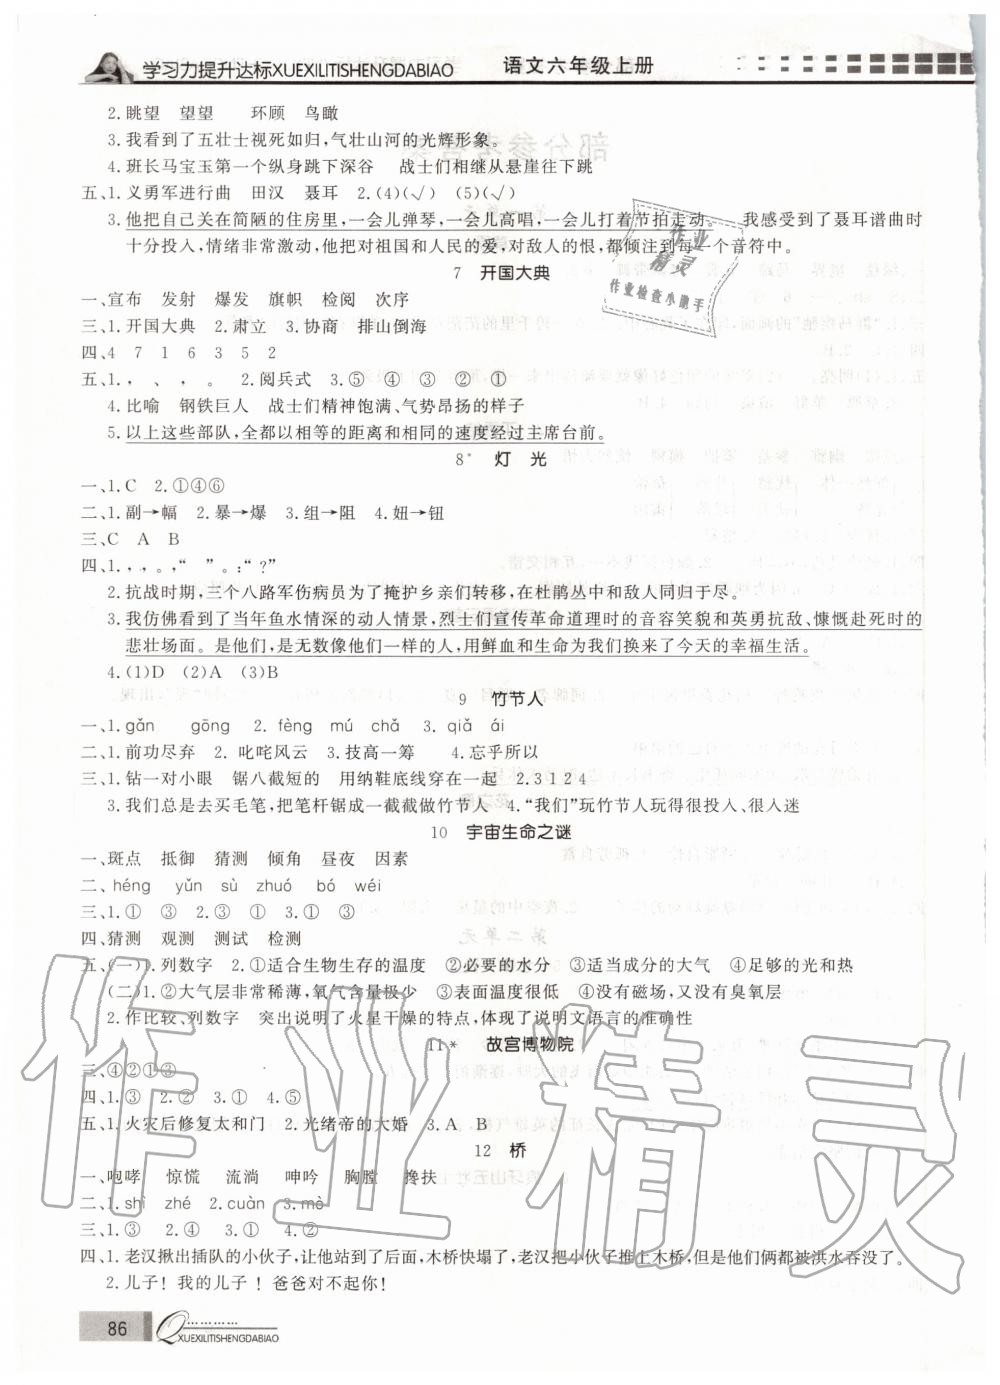 学习力提升达标XUEXILITISHENGDABIAO 语文六年级上册
2.眺望 望望 环顾 鸟瞰
3.我看到了五壮士视死如归,气壮山河的光辉形象。
4.班长马宝玉第一个纵身跳下深谷 战士们相继从悬崖往下跳
五、1.义勇军进行曲 田汉 聂耳 2.(4)(√) (5)(√)
3.他把自己关在简陋的住房里,一会儿弹琴,一会儿高唱,一会儿打着节拍走动。 我感受到了聂耳谱曲时
十分投入,情绪非常激动,他把对祖国和人民的爱,对敌人的恨,都倾注到每一个音符中。
7 开国大典
一、宣布 发射 爆发 旗帜 检阅 次序
三、1.开国大典 2.肃立 3.协商 排山倒海
四、4 7 1 6 3 5 2
五、1., 、 , 。 2.阅兵式 3.⑤ ④ ③ ② ①
4.比喻 钢铁巨人 战士们精神饱满、气势昂扬的样子
5.以上这些部队,全都以相等的距离和相同的速度经过主席台前。
8* 灯光
一、1.C 2.①④⑥
二、1.副→幅 2.暴→爆 3.组→阻 4.妞→钮
三、C A B
四、1.,,。,“ ”。:“?”
2.抗战时期,三个八路军伤病员为了掩护乡亲们转移,在杜鹃丛中和敌人同归于尽。
3.我仿佛看到了当年鱼水情深的动人情景,烈士们宣传革命道理时的音容笑貌和英勇抗敌、慷慨赴死时的
悲壮场面。是他们,是无数像他们一样的人,用鲜血和生命为我们换来了今天的幸福生活。
4.(1)D (2)A (3)B
9 竹节人
一、1.gǎn gōng 2.fèng mú chǎ 3.qiǎ ái
二、1.前功尽弃 2.叱咤风云 3.技高一筹 4.忘乎所以
三、1.钻一对小眼 锯八截短的 用纳鞋底线穿在一起 2.3 1 2 4
3.我们总是去买毛笔,把笔杆锯成一截截做竹节人 4.“我们”玩竹节人玩得很投入、很入迷
10 宇宙生命之谜
一、斑点 抵御 猜测 倾角 昼夜 因素
二、héng yǔn sù zhuó bó wéi
三、1.① ③ 2.③ ① 3.① ③
四、猜测 观测 测试 检测
五、(一)1.列数字 2.①适合生物生存的温度 ②必要的水分 ③适当成分的大气 ④足够的光和热
(二)1.②大气层非常稀薄,氧气含量极少 ③表面温度很低 ④没有磁场,又没有臭氧层
2.作比较、列数字 突出说明了火星干燥的特点,体现了说明文语言的准确性
11* 故宫博物院
三、④②①③
四、1.③ 2.② 3.① 4.⑤
五、1.火灾后修复太和门 2.光绪帝的大婚 3.A B
12 桥
一、咆哮 惊慌 流淌 呻吟 胸膛 搀扶
二、1.shì zhé 2.cuàn 3.mò
三、1.③ 2.④ 3.① 4.②
四、1.老汉揪出插队的小伙子,让他站到了后面,木桥快塌了,老汉把小伙子推上木桥,但是他们俩都被洪水吞没了。
2.儿子!我的儿子!爸爸对不起你!
86 XUEXILITISHENGDABIAO
作业
精灵
作业检查小助手
作业精灵